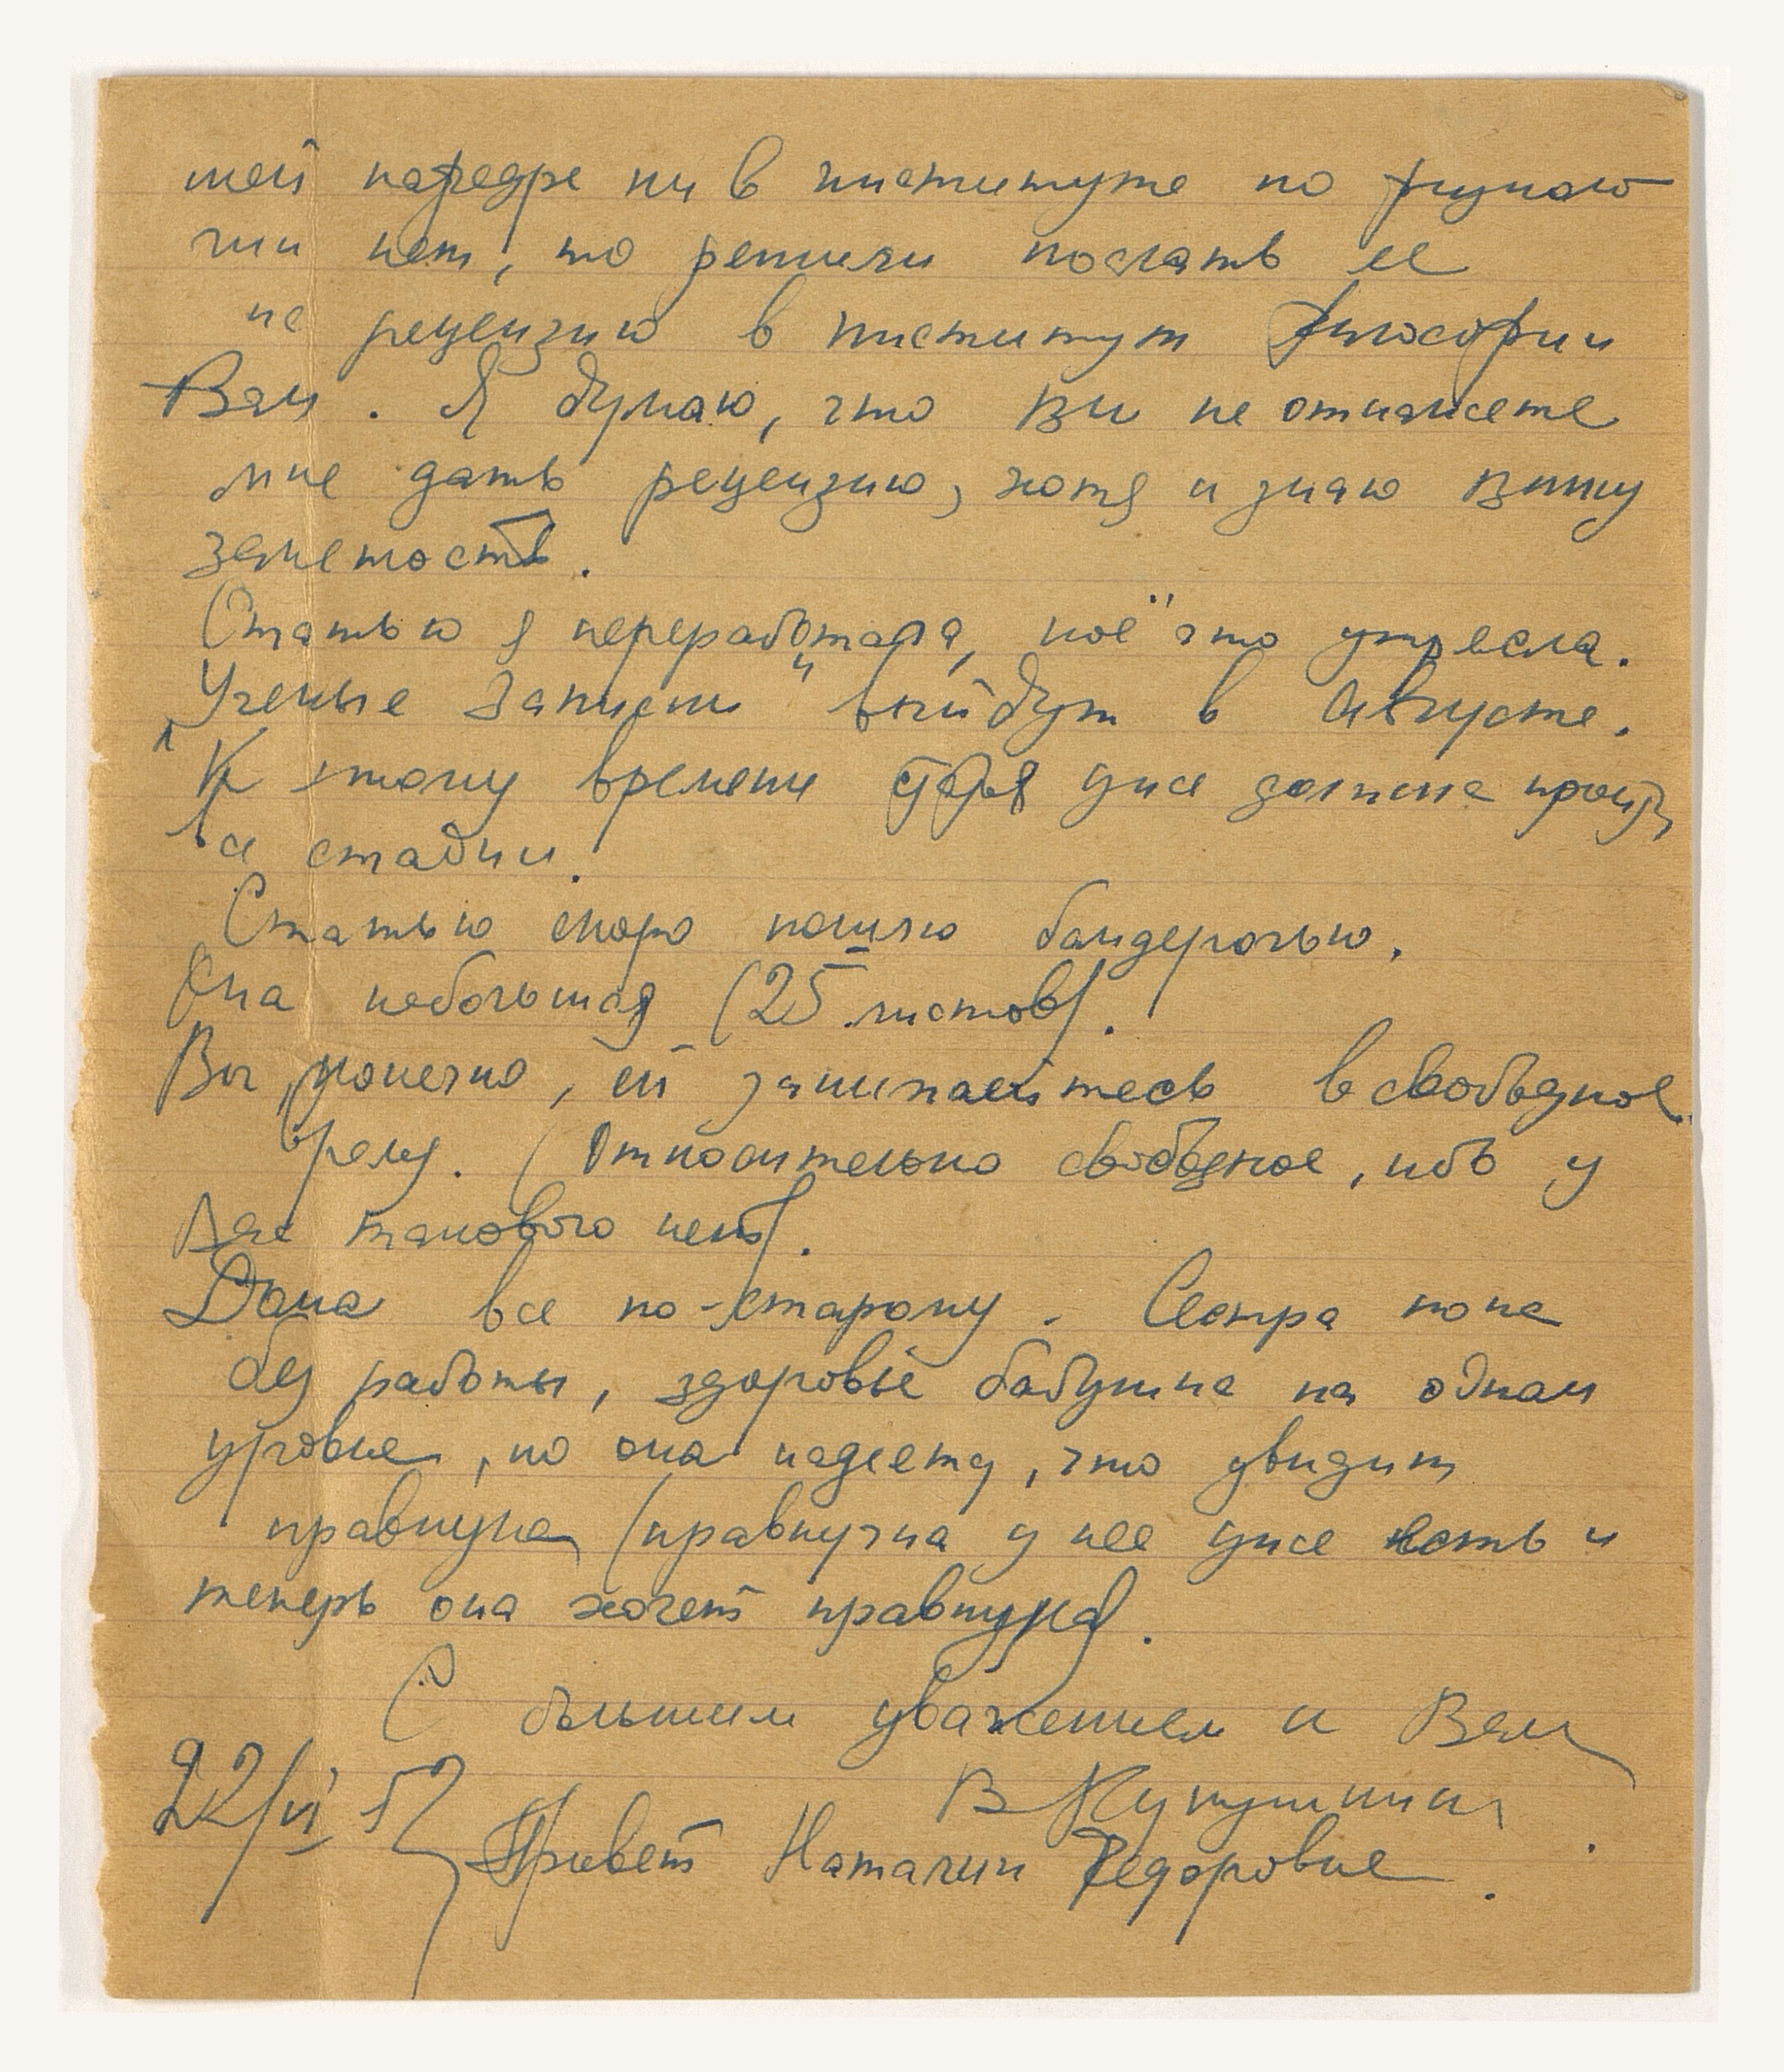 шей кафедре ни в институте по
гии нет, то решили послать ее
на рецензию в институт философии
Вам. Я думаю, что Вы не откажете
мне дать рецензию, хотя и знаю Вашу
занетость.
Статью я переработала, кое что утресла.
"Ученые Записки" выйдут в августе.
К этому времени уже должна пройти
все стадии.
Статью скоро пошлю бандеролью.
Она небольшая (25 листов).
Вы, конечно, ей занимайтесь в свободное
время. (Относительно свободное, ибо у
Вас такового нет).
Дома все по-старому. Сестра пока
без работы, здоровье бабушки на одном
уровне, но она надеется, что увидит
правнука (правнучка у нее уже есть и
теперь она хочет правнука).
С большим уважением к Вам
В Кукушкина
22/VI 52
Привет Наталии Федоровне.